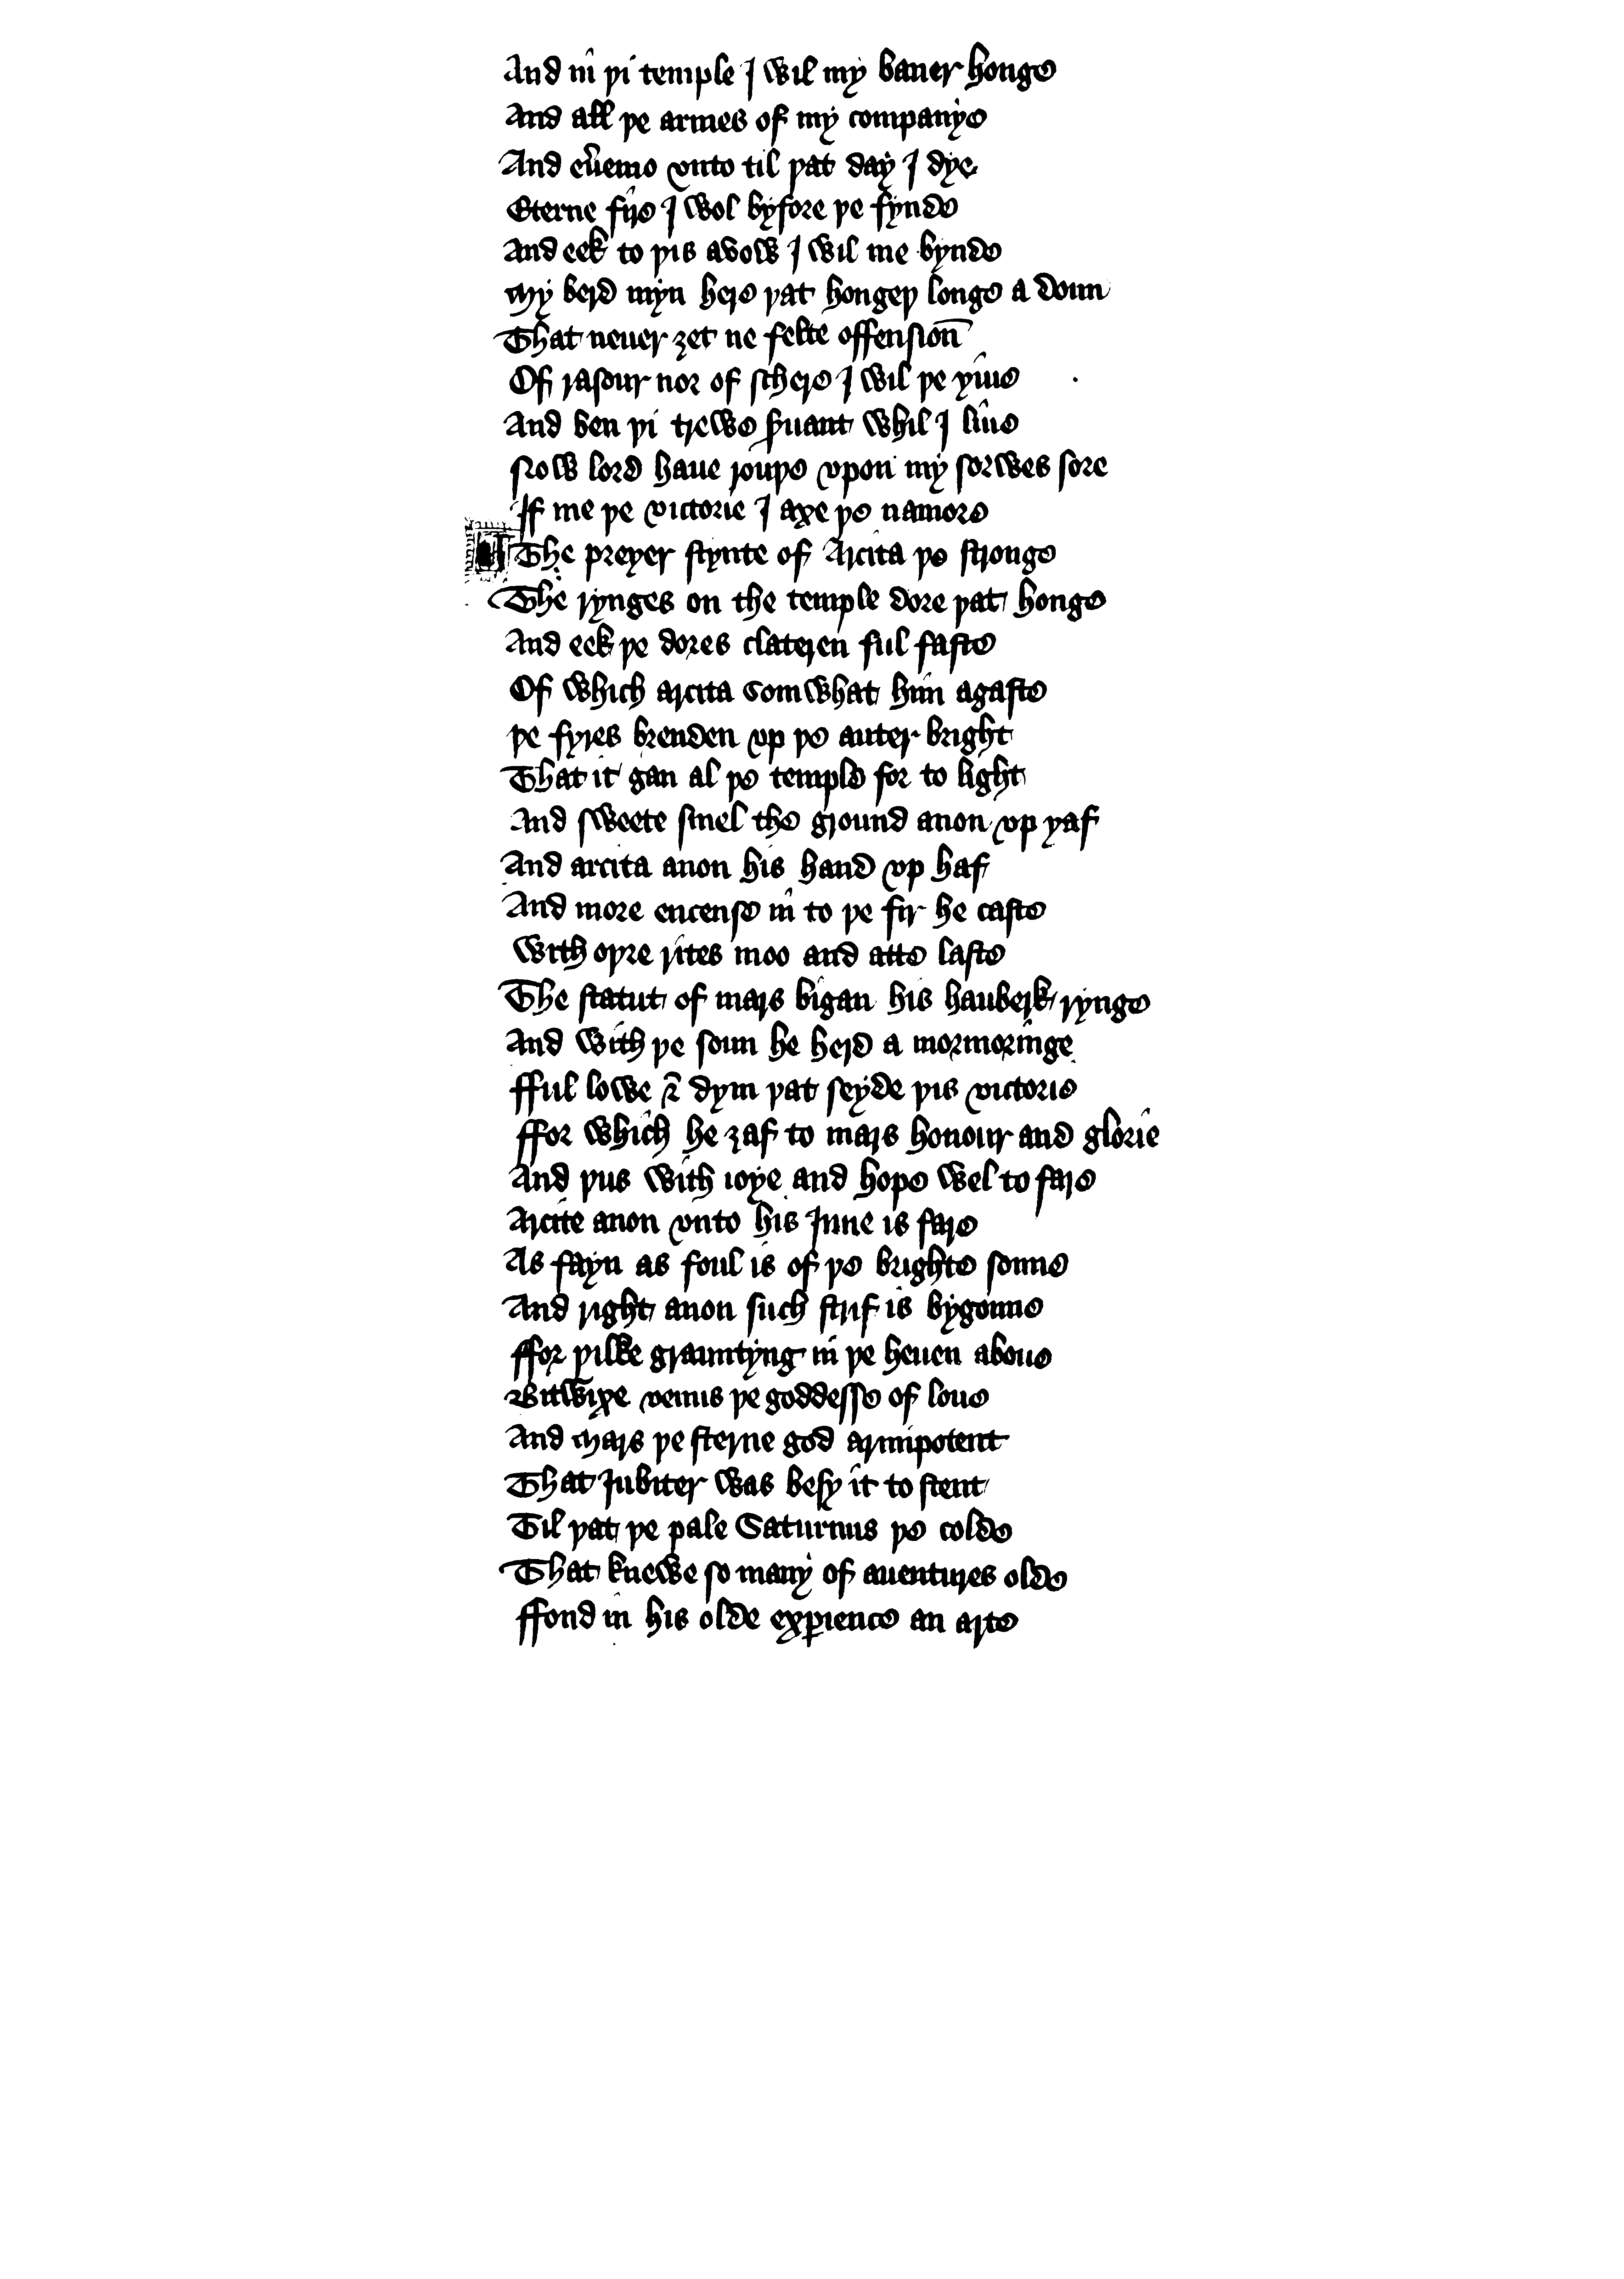 And in þi temple I wil my baner honge
And all þe armes of my companye
And eu̾emo vnto til þat day I dye
Eterne fyre I wol byfore þe fynde
And eek to þis avow I wil me bynde
My berd myn here þat hongeþ longe a doun
That neuer ȝet ne felte offension̄
Of rasour nor of schere I wil þe ȝiue
And ben þi trewe ꝑuant whil I liue
Now lord haue rouþe vpon my sorwes sore
If me þe victorie I axe þe namore
The preyer stynte of Arcita þe stronge
The rynges on the temple dore þat honge
And eek þe dores clateren ful faste
Of which arcita somwhat him agaste
þe fyres brenden vp þe auter bright
That it gan al þe temple for to light
And sweete smel the ground anon vp yaf
And arcita anon his hand vp haf
And more encense in to þe fir he caste
With oþre rites moo and atte laste
The statut of mars bigan his hauberk rynge
And with þe soun he herd a mormoringe
fful lowe ⁊̃ dym þat seyde þis victorie
ffor which he ȝaf to mars honour and glorie
And þus with ioye and hope wel to fare
Arcite anon vnto his Inne is fare
As fayn as foul is of þe brighte sonne
And right anon such strif is bygonne
ffor þilke grauntyng in þe heuen aboue
Bitwixe venus þe goddesse of loue
And mars þe sterne god armipotent
That Iubiter was besy it to stent
Til þat þe pale Saturnus þe colde
That knewe so many of auentures olde
ffond in his olde exꝑience an arte